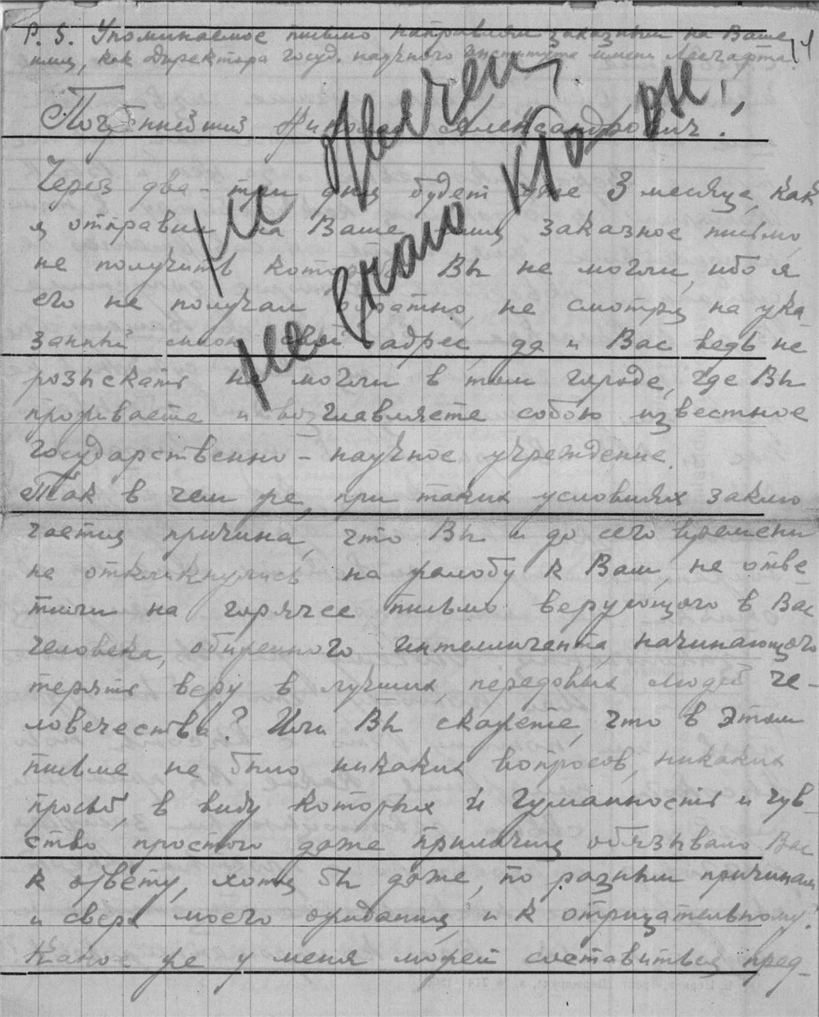 P. S. Упоминаемое письмо направляли заказным на Ваше
имя, как директора госуд. научного института имени Лесгафта.
14
Почтеннейший Николай Александрович!
Не отвечен,
не знаю кто он,
Через два-три дня будет уже 3 месяца, как
я отправил на Ваше имя заказное письмо,
не получить которое Вы не могли, ибо я
его не получал обратно, не смотря на ука
занный мною свой адрес, да и Вас ведь не
розыскать не могли в том городе, где Вы
проживаете и возглавляете собою известное
государственно-научное учреждение.
Так в чем же, при таких условиях заклю
чается причина, что Вы и до сего времени
не откликнулись на жалобу к Вам, не отве
тили на горячее письмо верующего в Вас
человека, обиженного интеллигента, начинающего
терять веру в лучших, передовых людей че-
ловечества? Или Вы скажете, что в этом
письме не было никаких вопросов, никаких
просьб, в виду которых и гуманность и чув-
ство простого даже приличия обязывало Вас
к ответу, хотя бы даже, по разным причинам
и сверх моего ожидания, и к отрицательному?
Какое же у меня может составиться пред-